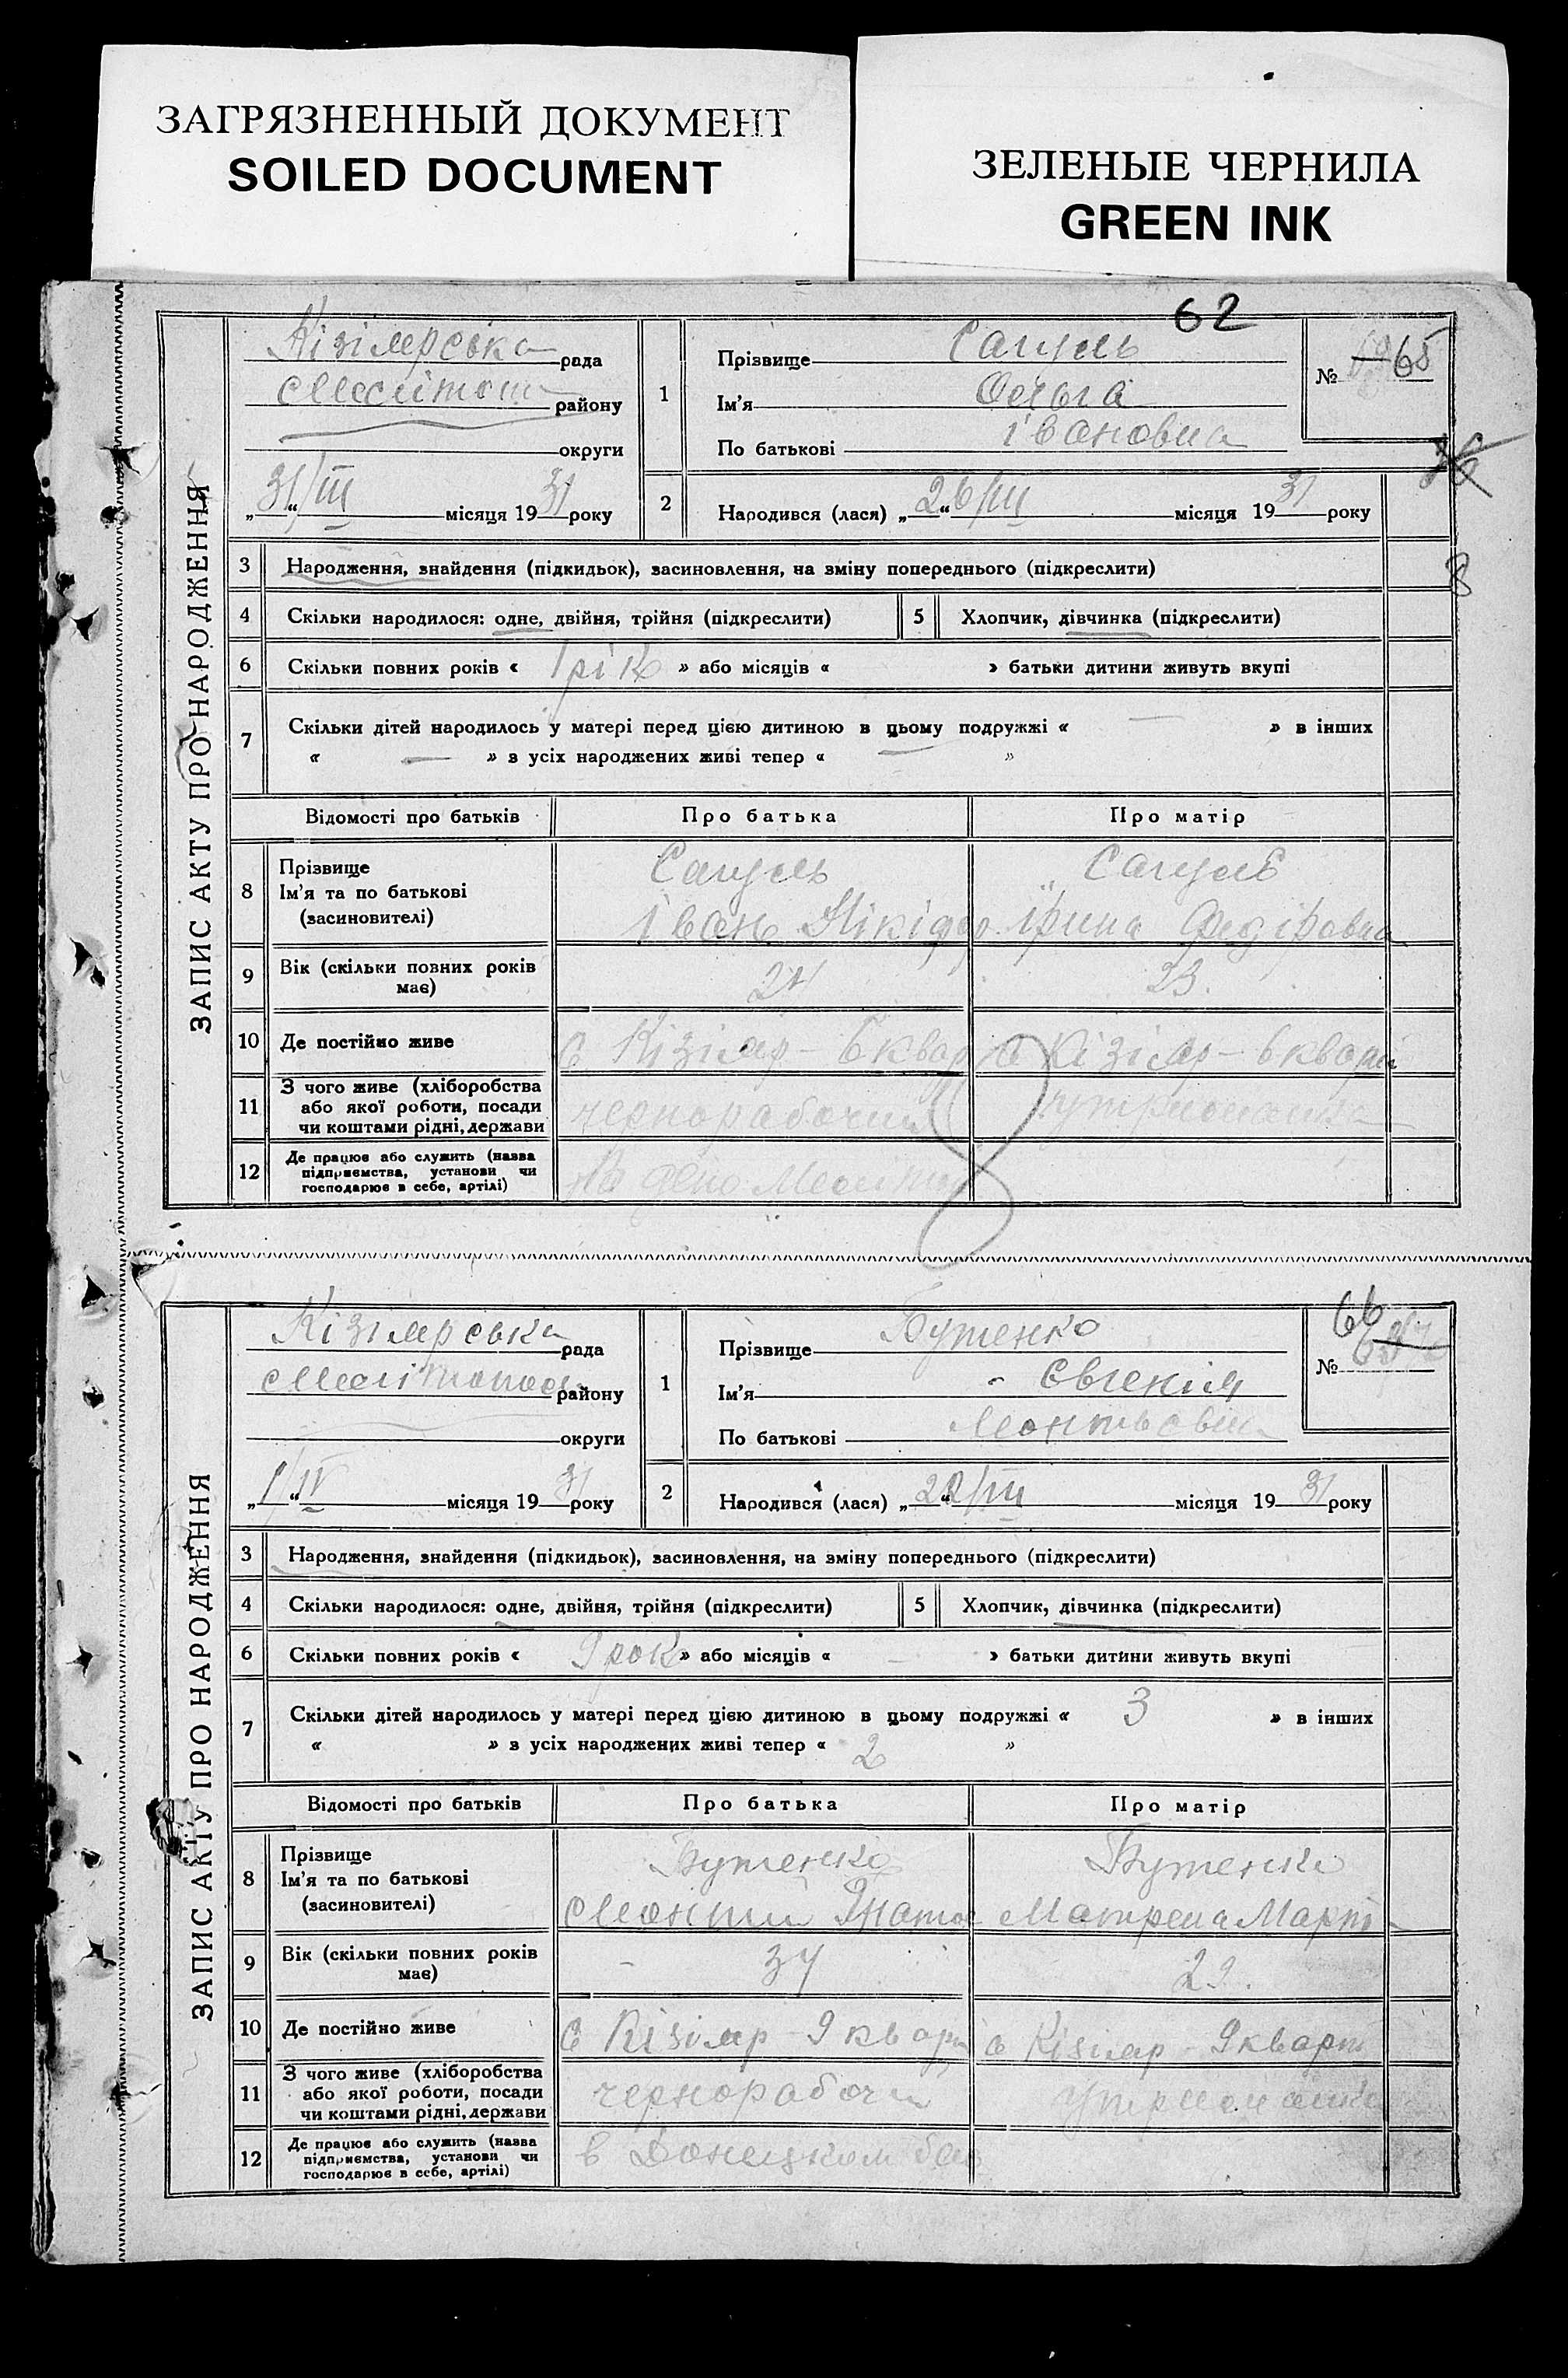 ЗАГРЯЗНЕННЫЙ ДОКУМЕНТ
SOILED DOCUMENT
ЗЕЛЕНЫЕ ЧЕРНИЛА
GREEN INK
62
ЗАПИС АКТУ ПРО НАРОДЖЕННЯ
Кізіярська рада
району
округи
„31/III“ місяця 1931 року
1
Прізвище
Ім'я Ольга
По батькові Івановна
№ 65
36
2
Народився (лася) „26/III“ місяця 1931 року
3 Народження, знайдення (підкидьок), засиновлення, на зміну попереднього (підкреслити)
8
4 Скільки народилося: одне, двійня, трійня (підкреслити) 5 Хлопчик, дівчинка (підкреслити)
6 Скільки повних років « 1 рік » або місяців « » батьки дитини живуть вкупі
7 Скільки дітей народилось у матері перед цією дитиною в цьому подружжі « — » в інших
« — » в усіх народжених живі тепер « — »
Відомості про батьків Про батька Про матір
8 Прізвище
Ім'я та по батькові
(засновителі)
Іван Нікіфор. Ірина Федіровна
9 Вік (скільки повних років має) 23.
10 Де постійно живе с Кізіяр - 6 кварт с Кізіяр - 6 кварт
11 З чого живе (хліборобства або якої роботи, посади чи коштами рідні, держави чернорабочий
12 Де працює або служить (назва підприємства, установи чи господарює в себе, артілі)
ЗАПИС АКТУ ПРО НАРОДЖЕННЯ
Кізіярська рада
району
округи
„1/IV“ місяця 1931 року
1
Прізвище Бутенко
Ім'я Євгенія
По батькові
№ 66
2
Народився (лася) „22/III“ місяця 1931 року
3 Народження, знайдення (підкидьок), засиновлення, на зміну попереднього (підкреслити)
4 Скільки народилося: одне, двійня, трійня (підкреслити) 5 Хлопчик, дівчинка (підкреслити)
6 Скільки повних років « 9 рок » або місяців « — » батьки дитини живуть вкупі
7 Скільки дітей народилось у матері перед цією дитиною в цьому подружжі « 3 » в інших
« » в усіх народжених живі тепер « 2 »
Відомості про батьків Про батька Про матір
8 Прізвище
Ім'я та по батькові
(засиновителі)
Бутенко Бутенко
Матрена
9 Вік (скільки повних років має) 34 29.
10 Де постійно живе с Кізіяр - 9 кварт с Кізіяр - 9 кварт
11 З чого живе (хліборобства або якої роботи, посади чи коштами рідні, держави чернорабочи
12 Де працює або служить (назва підприємства, установи чи господарює в себе, артілі) в Донецком